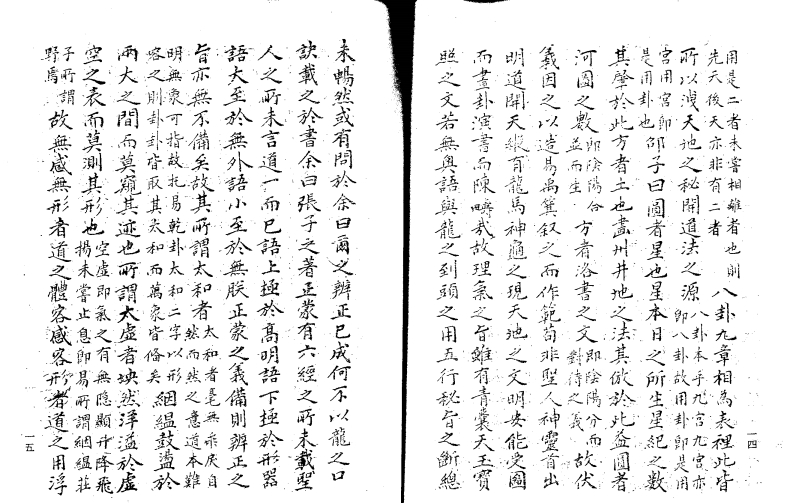 用是二者未嘗相離者也則
先天後天亦非有二者
八卦九章相為表裡此皆
所以洩天地之秘開道法之源
八卦本乎九宮九宮亦
即八卦故用卦即是用
宮用宮即
是用卦也
邵子曰圓者星也星本日之所生星紀之數
其肇於此方者土也畫州井地之法其倣於此益圓者
河圖之數
即陰陽合
益而生
方者洛書之文
即陰陽分而
對待之義
故伏
羲因之以造易禹箕叙之而作範苟非聖人神靈首出
明道開天縱有龍馬神龜之現天地之文明安能受圖
而畫卦演書而陳疇哉故理氣之旨雖有青囊天玉寶
照之文若無奧語與龍之到頭之用五行秘旨之斷總
一四
未暢然或有問於余曰爾之辨正已成何不以龍之口
訣載之於書余曰張子之著正蒙有六經之所未載聖
人之所未言道一而已語上極於高明語下極於形器
語大至於無外語小至於無朕正蒙之義備則辨正之
旨亦無不備矣故其所謂太和者
太和者毫無乖戾自
然而然之意道本難
明無象可指故托易乾卦太和二字以形
容之則卦卦皆取其太和而萬象皆俻矣
絪縕鼓盪於
兩大之間而莫窺其迹也所謂太虛者坱然洋溢於虛
空之表而莫測其形也
空虛即氣之有無隱顯升降飛
揚未嘗止息即易所謂絪縕莊
子所謂
野馬
故無感無形者道之體客感客形者道之用浮
一五